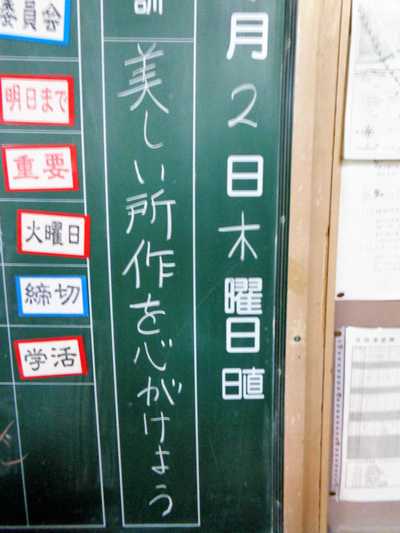 月2日木曜日日直
訓
美しい所作を心がけよう
委員会
明日まで
重要
火曜日
締切
学活